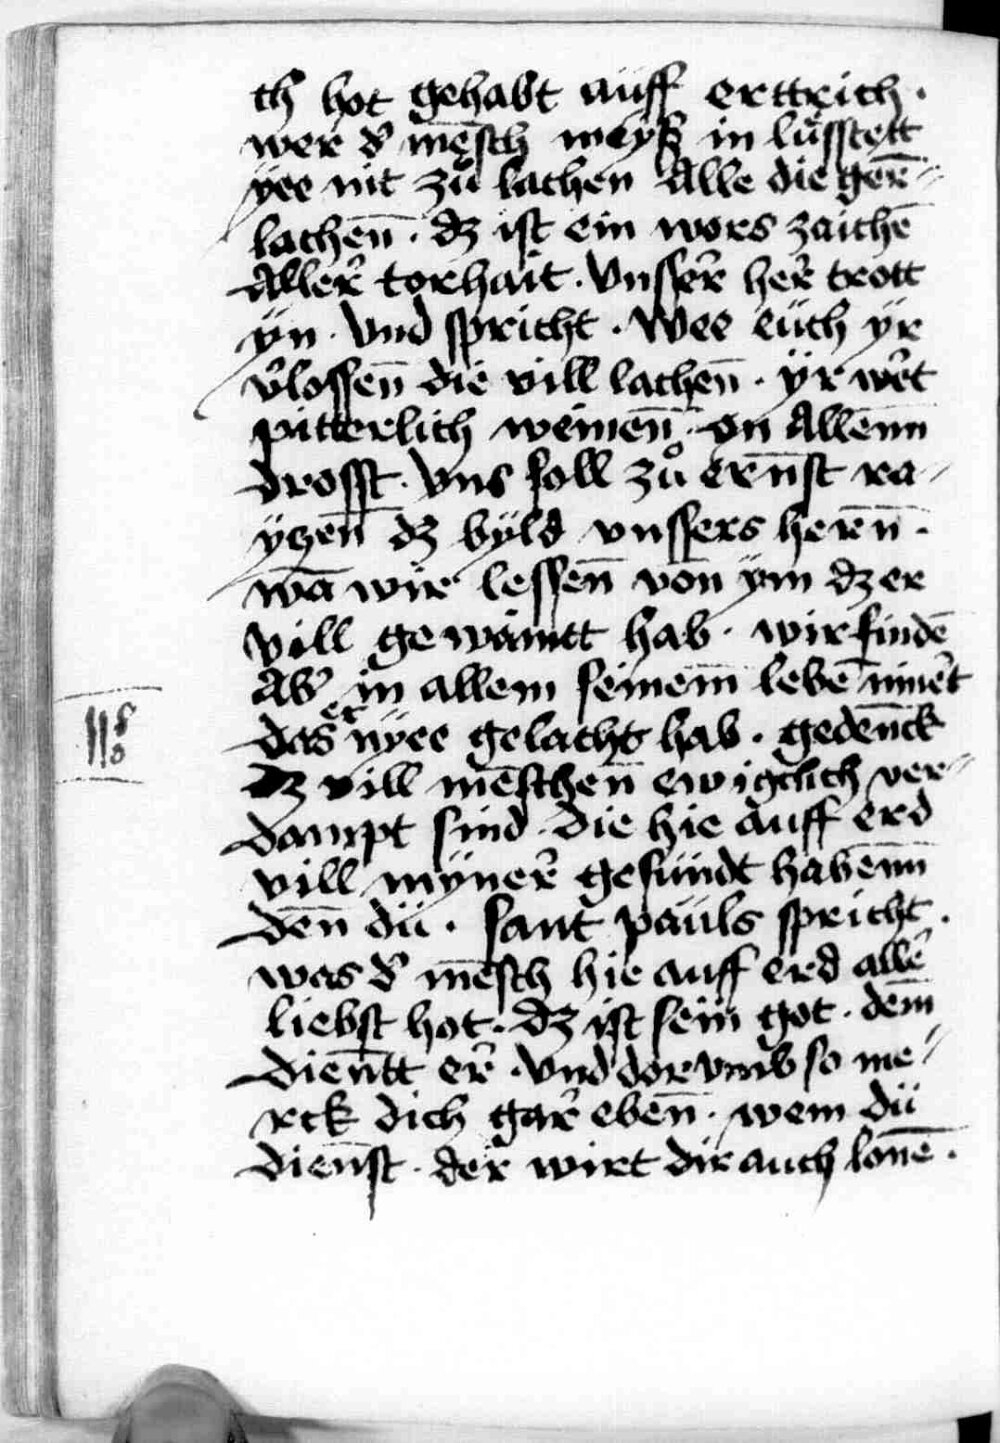 ch hot gehabt aüff erttrich ·
wer d̕ mēsch weyß in lüsstett
yee nit zů lachen Alle die gerē //
lachen̄ · dz ist ein wors zaichē
Aller̕ torhait · Vnsser̕ her̕ trott
ÿn · Vnd spricht · Wee eüch ÿr
v̕lossen̄ die vill lachen̄ · ÿr wer̕t
pitterlich weinen̄ · on Allen̄n
drosst · Vns soll zů ern̄st ra //
ÿtzen̄ dz byld vnssers heren̄ ·
wā wir lessen̄ von ÿm dz er
vill gewaintt hab · wir findē
Ab̕ in allem seinem̄ lebē nīner̕t
das er nÿee gelacht hab · gedēnck
dz vill mēschen̄ ewigclich ver //
dampt sind · die hie auff erd
vill mÿner̕ gesündt haben̄n
den̄ dü · sant paüls spricht ·
was d̕ mēsch hie auff erd alle̕
liebst hot · dz ist sein got · dem̄
dien̄tt er̕ · Vnd dor vmb so me //
rck dich gar̕ eben̄ · wem dü
dien̄st · der wirt dir auch lonē ·